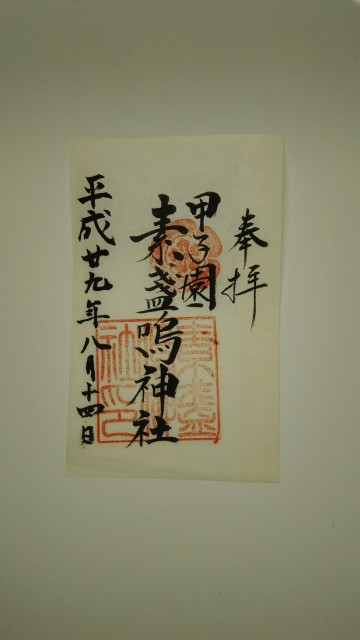 奉拝
甲子園
素盞嗚神社
平成廿九年八月十四日